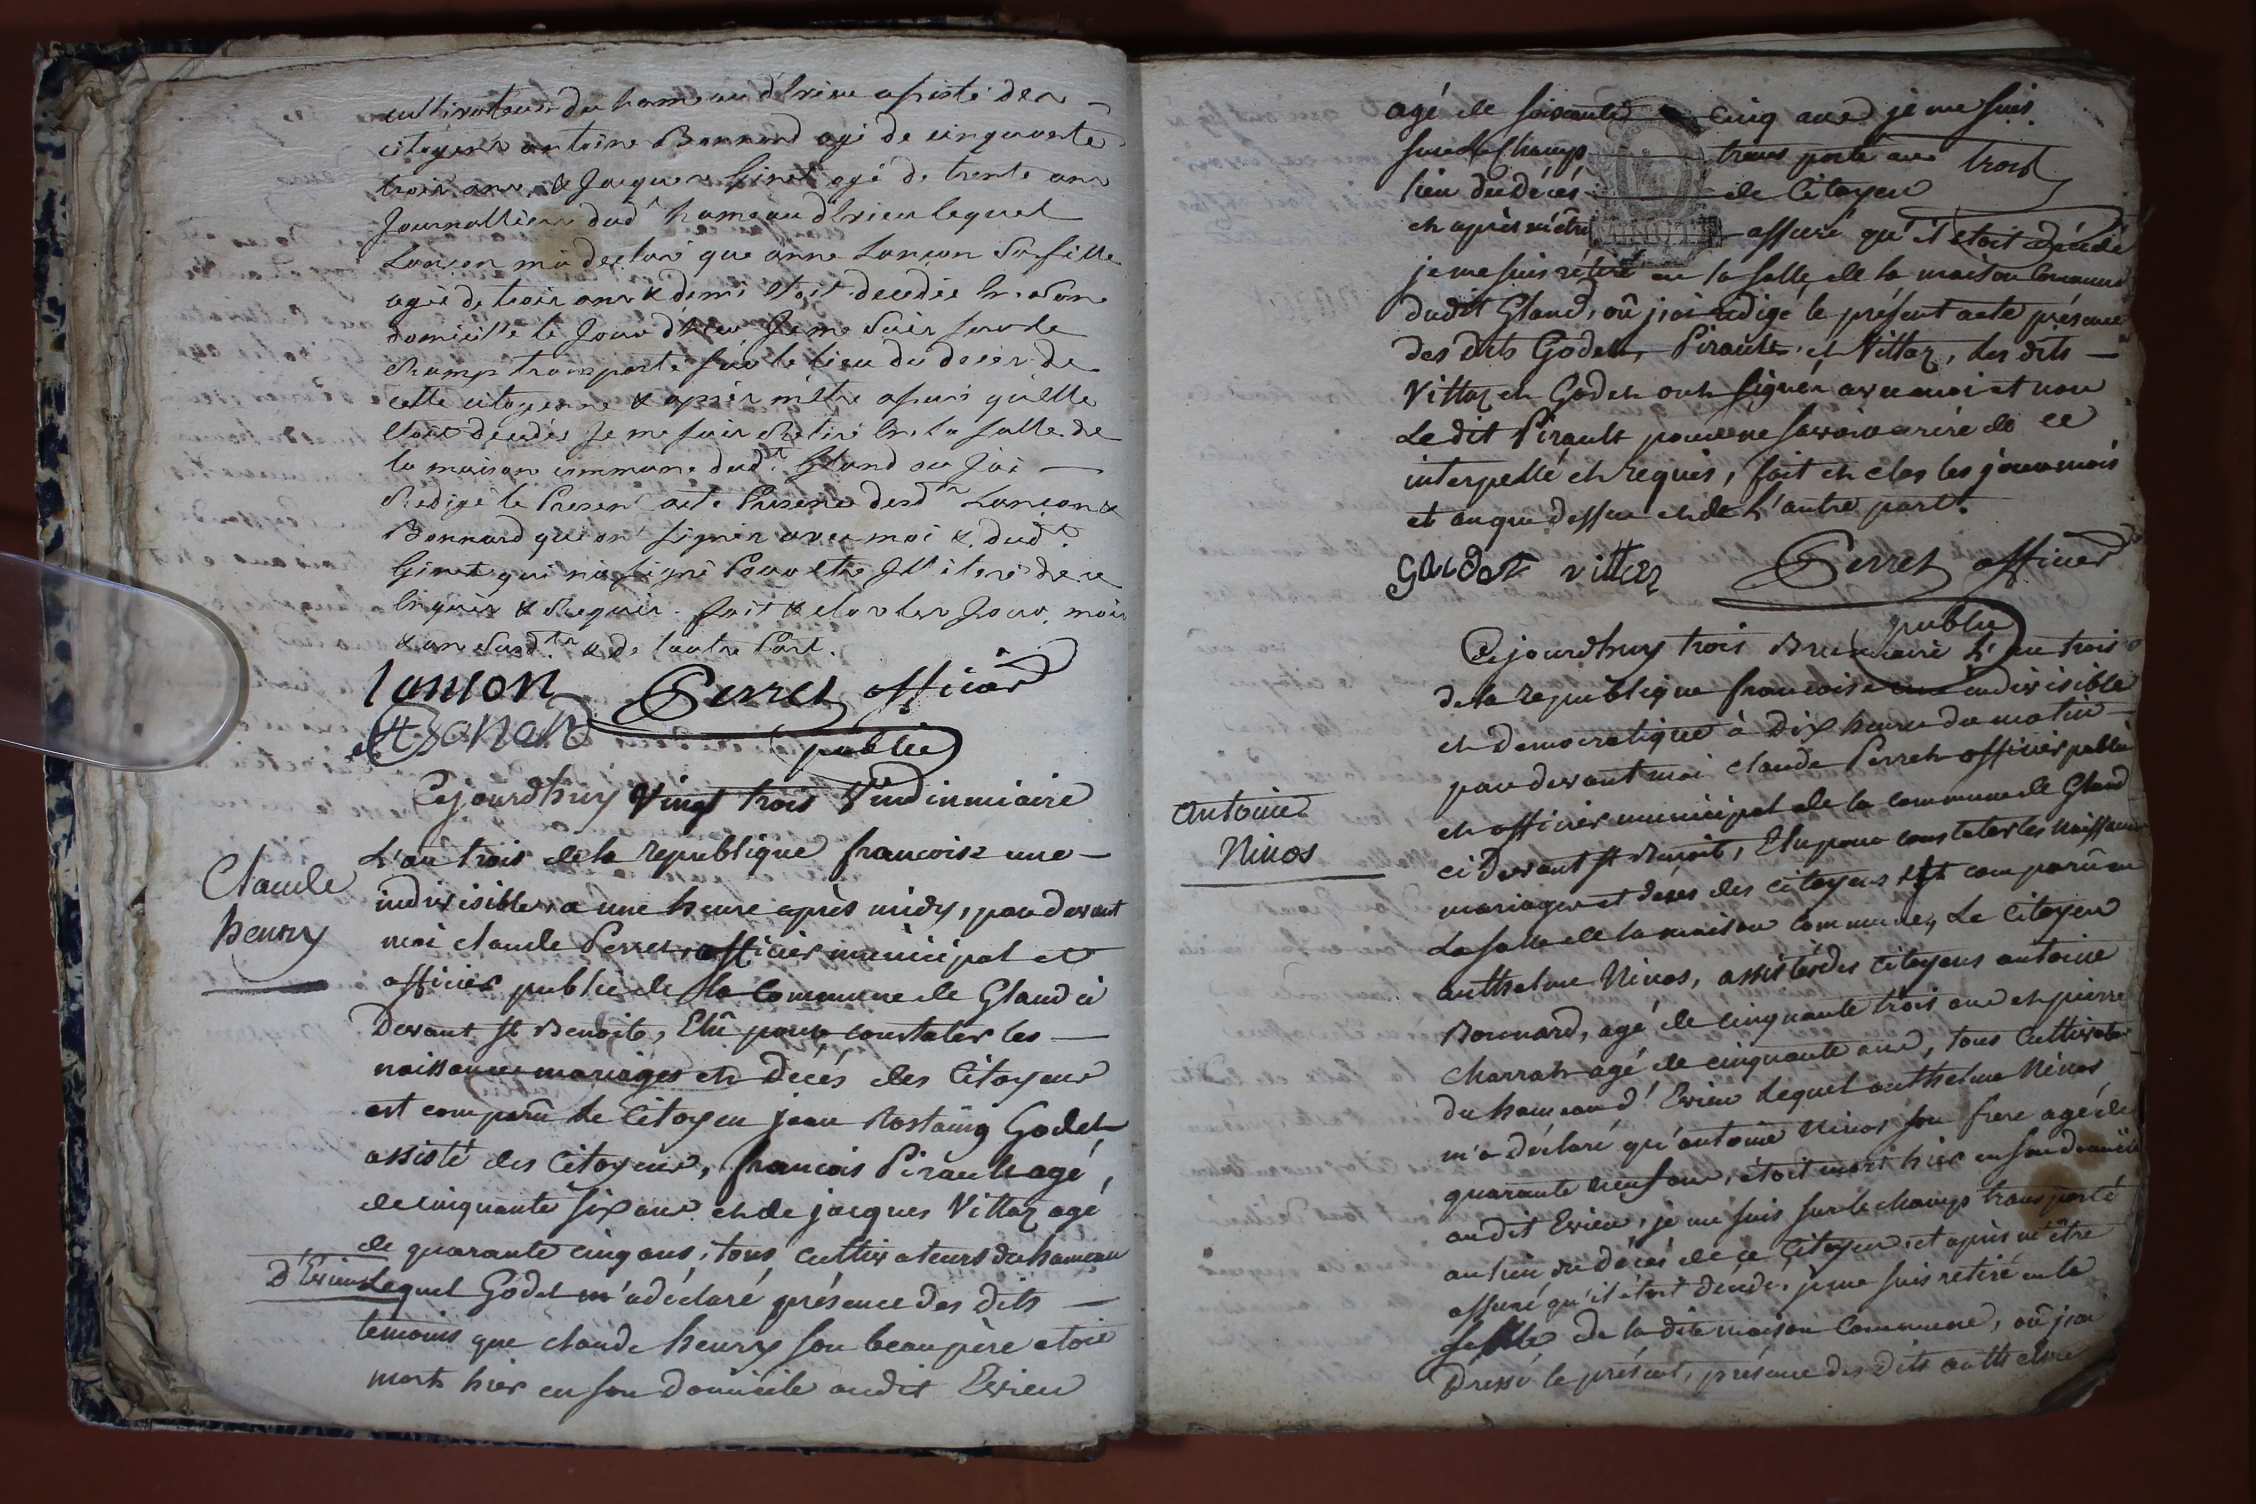 cultivateur du hameau d'Evieu asisté des
citoyens antoine Bonnard agé de cinquante
trois ans & Jacques Ginet agé de trente ans
Journalliers dud.t hameau d'Evieu lequel
Lançon m'a declaré que anne Lançon sa fille
agée de trois ans & demi etoit decedée en son
domicille le Jour d'hier Je me suis sur le
champ transporté sur le lieu du deces de
cette citoyenne & apres m'etre asuré qu'elle
etoit decedée Je me suis Retiré en la salle de
la maison commune dud.t Gland ou J'ai
Redigé le Present acte Presence desd.ts Lançon &
Bonnard qui ont signés avec moi & dud.t
Ginet qui n'a signé Pour etre Illiteré de ce
enquis & Requis. fait & clos les Jour, mois
& an susd.ts & de l'autre Part.
lanson Perret officier
Bonard
public
Cejourdhuy Vingt trois Vendinmiaire
L'an trois de la republique francoise une
indivisible, a une heure après midy, par devant
moi claude Perret, officier municipal et
officier public de la commune de Gland ci
Devant St Benoit, Elû pour constater les
naissances mariages et Décès des Citoyens
est comparû le Citoyen jean Rostaing Godet
assisté des Citoyens, francois Pirault agé,
de cinquante six ans et de jacques Vittoz agé
de quarante cinq ans, tous cultivateurs du hameau
D'Evieu Lequel Godet m'a déclaré présence des dits
temoins que claude henry son beaupère etoit
mort hier en son Domicile audit Evieu
Claude
henry
agé de soixante cinq ans je me suis
sur le champ transporté au
trois
lieu du décés de Citoyen
et après m'être assuré qu'il etoit décédé
je me suis retiré en la salle de la maison Commune
dudit Gland, où j'ai redigé le présent acte présence
des dits Godet, Pirault et Vittoz, les dits
Vittoz et Godet ont signés avec moi et non
Le dit Pirault pour ne savoir ecrire de ce
interpellé et requis, fait et clos les jour mois
et an que dessus et de L'autre part.
Godet vittoz Perret officier
public
Cejourdhuy trois Brumaire L'an trois
de la republique francoise une indivisible
et democratique à Dix heures du matin
par devant moi claude Perret officier public
et officier municipal de la commune de Gland
ci Devant St Benoit, Elu pour constater les Naissances
mariages et décés des citoyens est comparû en
La salle de la maison commune, Le Citoyen
anthelme Ninos, assisté des Citoyens antoine
Bonnard, agé de cinquante trois ans et pierre
Charrat agé de cinquante ans, tous Cultivateurs
du hameau d'Evieu Lequel anthelme Ninos
m'a déclaré qu'antoine Ninos son frere agé de
quarante neuf ans, étoit mort hier en son domicile
audit Evieu, je me suis sur le champ transporté
au lieu du décés de ce Citoyen et après m'être
assuré qu'il étoit décédé, je me suis retiré en la
salle de la dite maison Commune, où j'ai
Dressé le présent, présence des dits anthelme
antoine
Ninos